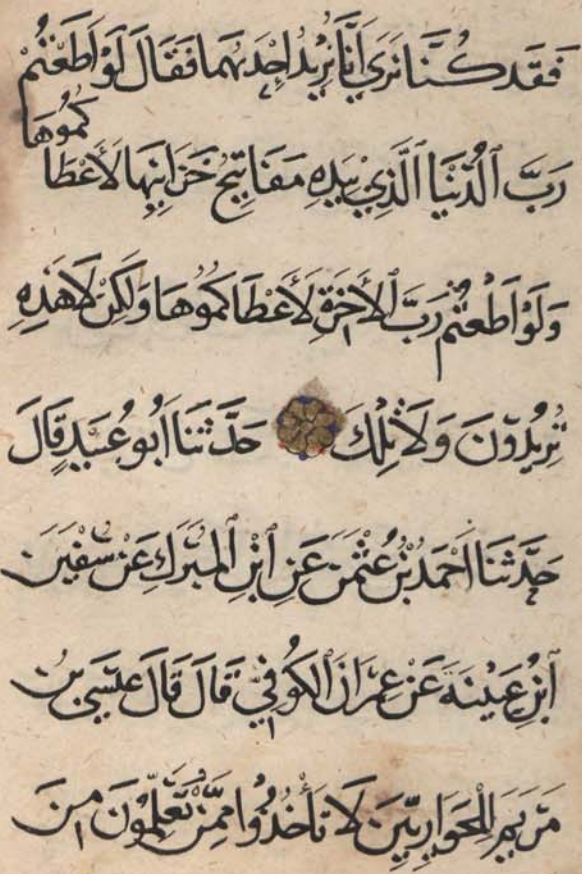 فَقَد كُنَّا نَرَى أَنَّا نُرِيْدُ اِحْدَيهُمَا فَقَالَ لَوْ اَطَعْتُمْ
رَبَّ ٱلدُّنْيَا ٱلَّذِيْ بِيَدِهِ مَفَاتِيْحُ خَزَايِنِهَا لَأَعْطَا كُمُوْهَا
وَلَوْ اَطَعْتُمْ رَبَّ ٱلْأَخِرَةِ لَأَعْطَاكُمُوْهَا وَلَكِنْ لَا هَذِهِ
تُرِيْدُوْنَ وَلَا تِلْكَ حَدَّثَنَا اَبُو عُبَيْدٍ قَالَ
حَدَّثَنَا اَحْمَدُ بْنُ عُثْمٰنَ عَنِ ٱبْنِ ٱلْمُبٰرَكِ عَنْ سُفْيٰنَ
ٱبْنِ عُيَيْنَةَ عَنْ عِمْرَانَ ٱلْكُوْفِيِّ قَالَ قَالَ عِيْسَى بْنُ
مَرْيَمَ لِلْحَوَارِيِّيْنَ لَا تَأْخُذُوْا مِمَّنْ تُعَلِّمُوْنَ مِنَ